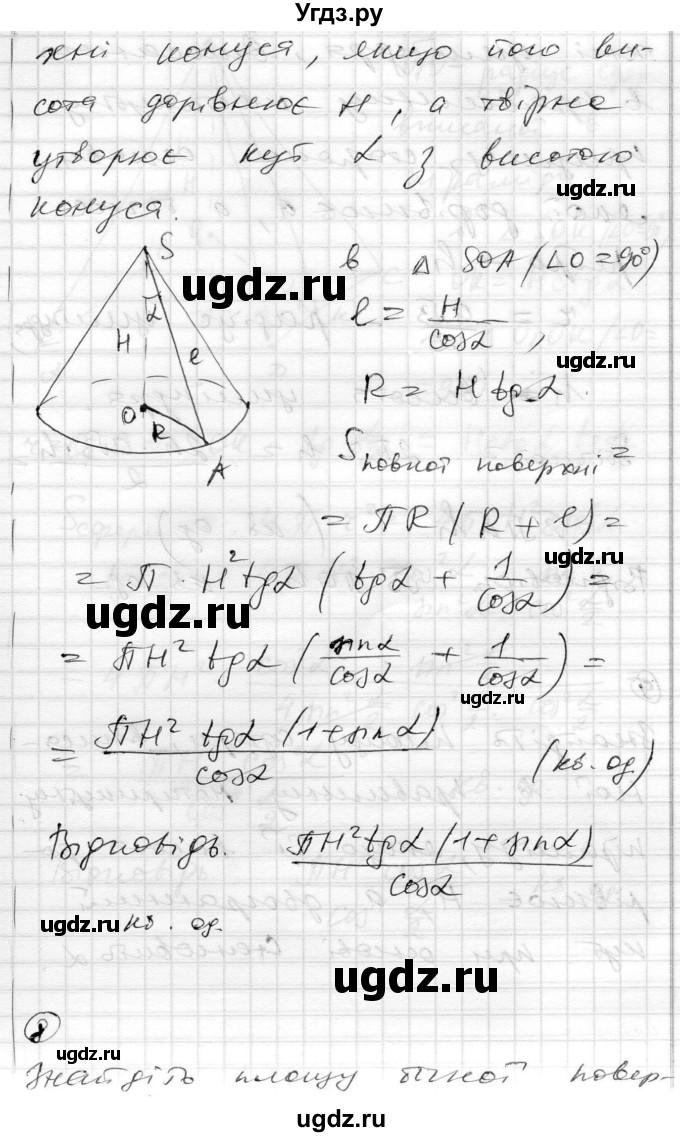 Угдз.ру
хні конуса, якщо його ви-
сота дорівнює H, а твірна
утворює кут α з висотою
ugdz.ru
конуса.
S
в △ SOA (∠O = 90°)
ugdz.ru
α
l = H/cosα,
H
l
ugdz.ru
R = H tgα.
O
R
A
S повної поверхні =
ugdz.ru
= ПR (R + l) =
ugdz.ru
= П · H² tgα (tgα + 1/cosα) =
ugdz.ru
= ПH² tgα (sinα/cosα + 1/cosα) =
ugdz.ru
= ПH² tgα (1 + sinα)/cosα (кв. од.)
Відповідь. ПH² tgα (1 + sinα)/cosα
ugdz.ru кв. од.
ugdz.ru
8
ugdz.ru
Знайдіть площу бічної повер-
ugdz.ru